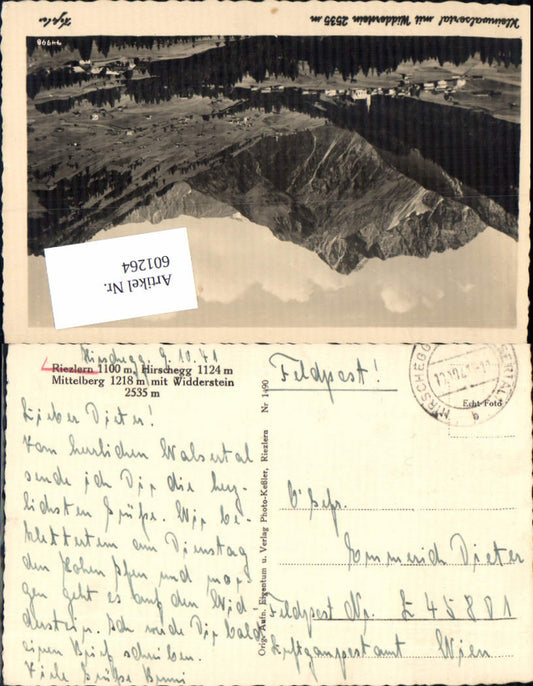 Kleinwalsertal mit Widderstein 2535 m
74998
Artikel Nr.
601264
Hirschegg. 9.10.41
Riezlern 1100 m, Hirschegg 1124 m
Mittelberg 1218 m mit Widderstein
2535 m
Lieber Dieter!
Vom herrlichen Walsertal
sende ich Dir die herz-
lichsten Grüße. Wir be-
kletterten am Dienstag
den Hohen Ifen und mor-
gen geht es auf den Wid-
derstein. Ich werde Dir bald
einen Brief schreiben.
Viele Grüße Bruni
Orig. Aufn. Eigentum u. Verlag Photo-Keßler, Riezlern Nr 1490
Feldpost!
HIRSCHEGG
b
Echt Foto
Gefr.
Emmerich Dieter
Feldpost Nr. L 45801
Luftgaupostamt Wien